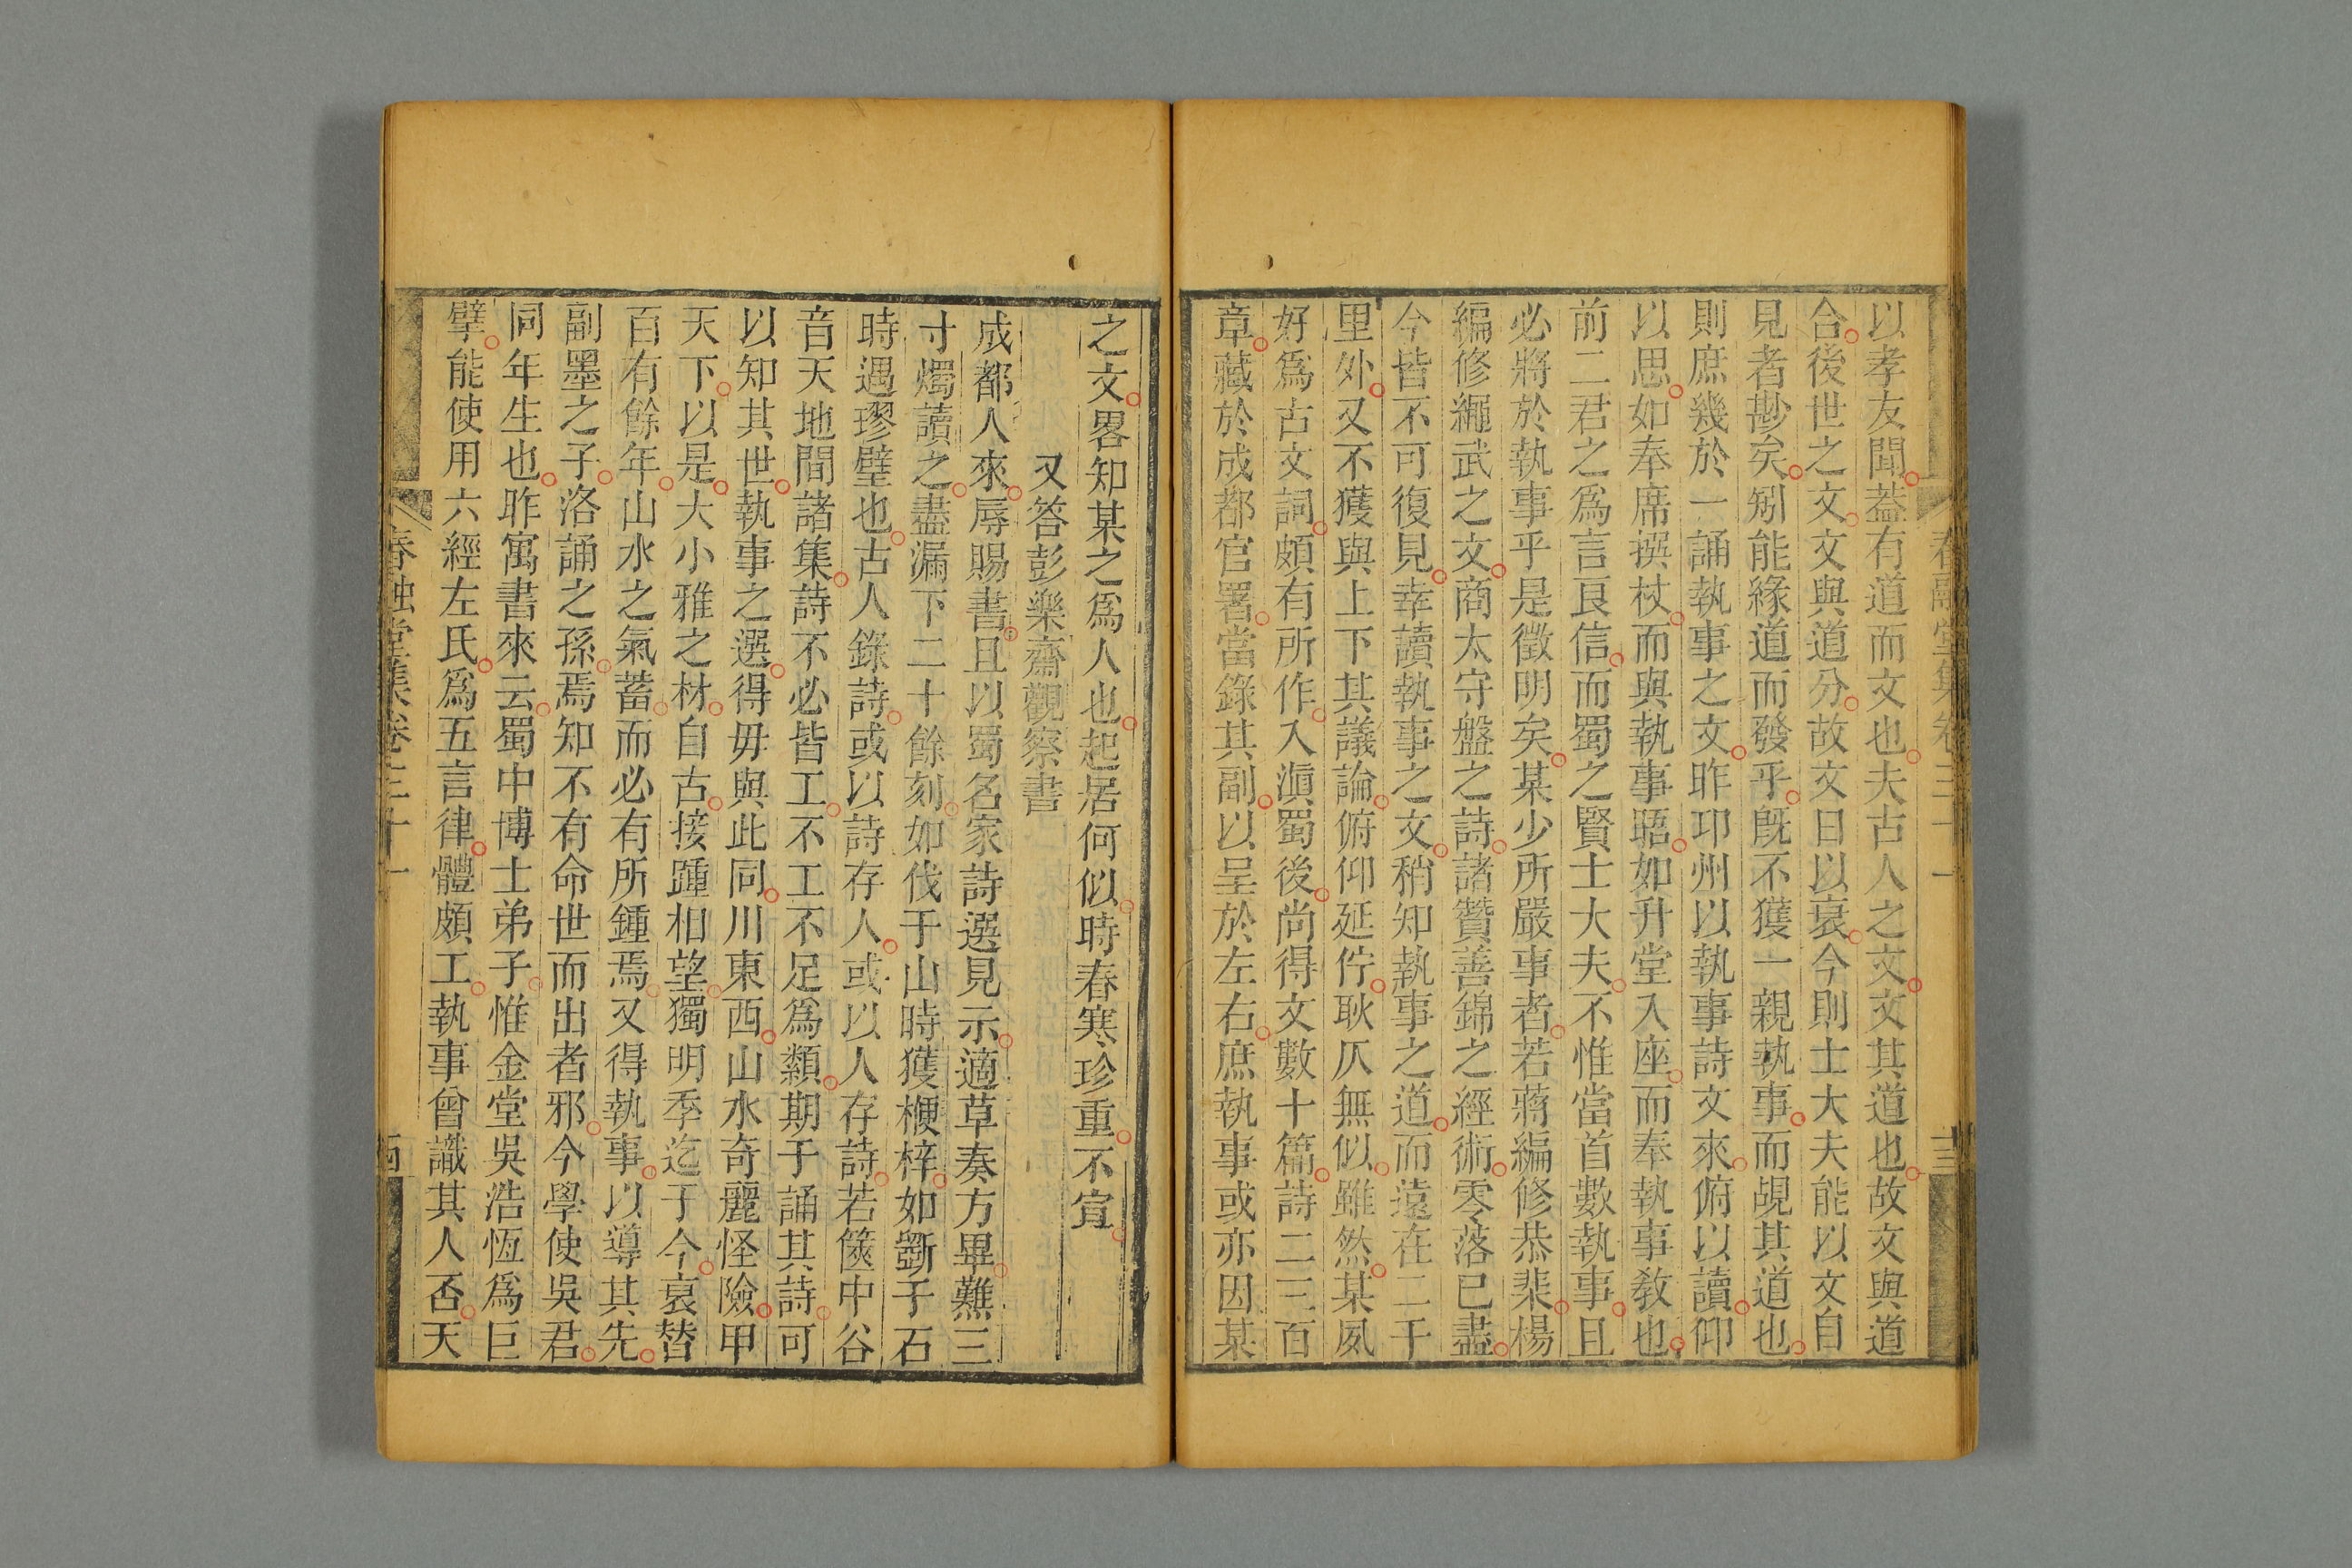 以孝友聞葢有道而文也夫古人之文文其道也故文與道
合後世之文文與道分故文日以衰今則士大夫能以文自
見者尠矣矧能緣道而發乎旣不獲一親執事而覘其道也
則庶幾於一誦執事之文昨邛州以執事詩文來俯以讀仰
以思如奉席撰杖而與執事晤如升堂入座而奉執事教也
前二君之爲言良信而蜀之賢士大夫不惟當首數執事且
必將於執事乎是徵明矣某少所嚴事者若蔣編修恭棐楊
編修繩武之文商太守盤之詩諸贊善錦之經術零落已盡
今皆不可復見幸讀執事之文稍知執事之道而遠在二千
里外又不獲與上下其議論俯仰延佇耿仄無似雖然某夙
好爲古文詞頗有所作入滇蜀後尚得文數十篇詩二三百
章藏於成都官署當錄其副以呈於左右庶執事或亦因某
春融堂集卷三十一
十三
之文畧知某之爲人也起居何似時春寒珍重不宣
又答彭樂齋觀察書
成都人來辱賜書且以蜀名家詩選見示適草奏方畢爇三
寸燭讀之盡漏下二十餘刻如伐于山時獲楩梓如斵于石
時遇璆璧也古人錄詩或以詩存人或以人存詩若篋中谷
音天地間諸集詩不必皆工不工不足爲纇期于誦其詩可
以知其世執事之選得毋與此同川東西山水奇麗怪險甲
天下以是大小雅之材自古接踵相望獨明季迄于今衰替
百有餘年山水之氣蓄而必有所鍾焉又得執事以導其先
副墨之子洛誦之孫焉知不有命世而出者邪今學使吳君
同年生也昨寓書來云蜀中博士弟子惟金堂吳浩恆爲巨
擘能使用六經左氏爲五言律體頗工執事曾識其人否天
春融堂集卷三十一
十四